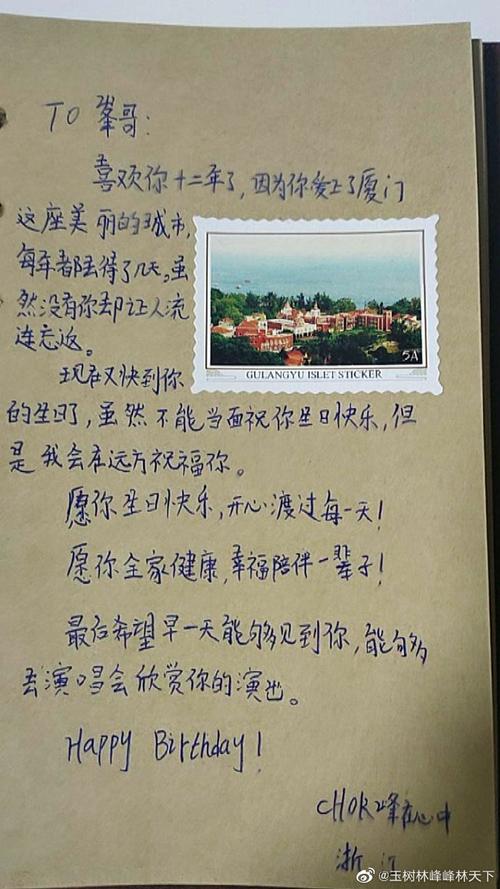 TO 峯哥：
喜欢你十二年了，因为你爱上了厦门
这座美丽的城市，
每年都去待了几天。虽
然没有你却让人流
连忘返。
5A
GULANGYU ISLET STICKER
现在又快到你
的生日了，虽然不能当面祝你生日快乐，但
是我会在远方祝福你。
愿你生日快乐，开心渡过每一天！
愿你全家健康，幸福陪伴一辈子！
最后希望早一天能够见到你，能够
去演唱会欣赏你的演出。
Happy Birthday！
CHOK峰在心中
浙江
@玉树林峰峰林天下